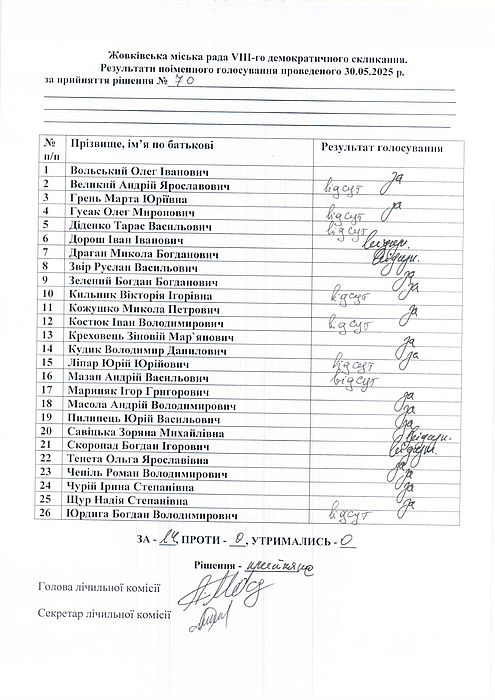 Жовківська міська рада VIII-го демократичного скликання.
Результати поіменного голосування проведеного 30.05.2025 р.
за прийняття рішення № 70
№ п/п Прізвище, ім’я по батькові Результат голосування
1 Вольський Олег Іванович за
2 Великий Андрій Ярославович відсут
3 Грень Марта Юріївна за
4 Гусак Олег Миронович відсут
5 Діденко Тарас Васильович відсут
6 Дорош Іван Іванович
7 Драган Микола Богданович
8 Звір Руслан Васильович за
9 Зелений Богдан Богданович за
10 Кильник Вікторія Ігорівна відсут
11 Кожушко Микола Петрович за
12 Костюк Іван Володимирович відсут
13 Креховець Зіновій Мар`янович за
14 Кудик Володимир Данилович за
15 Ліпар Юрій Юрійович відсут
16 Мазан Андрій Васильович відсут
17 Мариняк Ігор Григорович за
18 Масола Андрій Володимирович за
19 Пилипець Юрій Васильович за
20 Савіцька Зоряна Михайлівна
21 Скоропад Богдан Ігорович
22 Тенета Ольга Ярославівна за
23 Чепіль Роман Володимирович за
24 Чурій Ірина Степанівна за
25 Щур Надія Степанівна за
26 Юрдига Богдан Володимирович відсут
ЗА - 14, ПРОТИ - 0, УТРИМАЛИСЬ - 0
Рішення - прийняте
Голова лічильної комісії
Секретар лічильної комісії